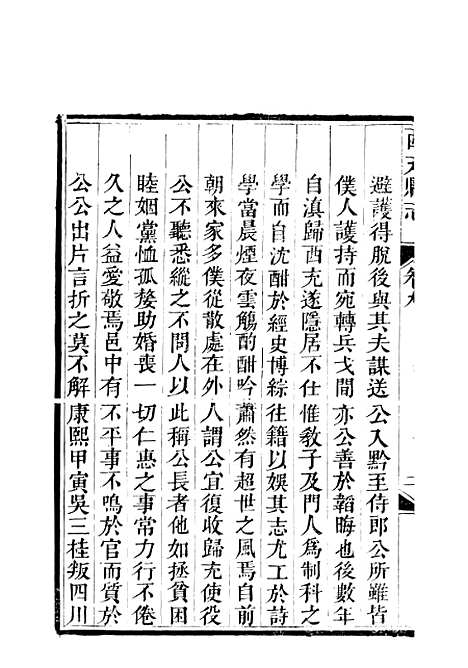 酉充縣志 卷九 二
避護得脫後與其夫謀送公入黔至侍郎公所雖皆
僕人護持而宛轉兵戈間亦公善於韜晦也後數年
自滇歸酉充遂隱居不仕惟敎子及門人爲制科之
學而自沈酣於經史博綜往籍以娛其志尤工於詩
學當晨煙夜雲觴酌酣吟蕭然有超世之風焉自前
朝來家多僕從散處在外人謂公宜復收歸充使役
公不聽悉縱之不問人以此稱公長者他如拯貧困
睦姻黨恤孤嫠助婚喪一切仁惠之事常力行不倦
久之人益愛敬焉邑中有不平事不鳴於官而質於
公公出片言折之莫不解康熙甲寅吳三桂叛四川